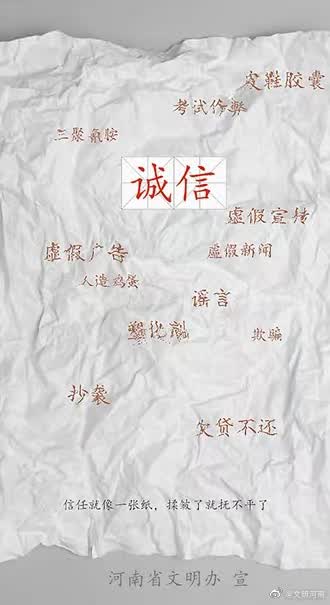 皮鞋胶囊
考试作弊
三聚氰胺
诚信
虚假宣传
虚假广告
虚假新闻
人造鸡蛋
谣言
欺骗
抄袭
欠贷不还
信任就像一张纸，揉皱了就抚不平了
河南省文明办 宣
@文明河南